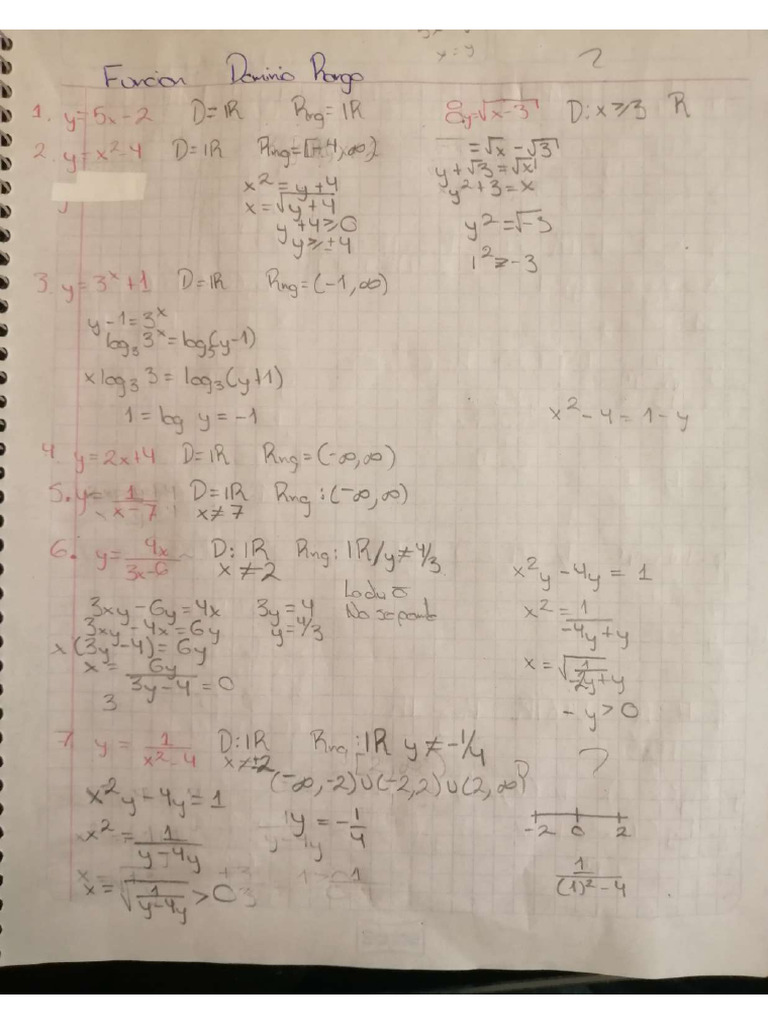 x = y
Funcion Dominio Rango
1. y=5x-2 D=IR Rng=IR
2. y=x²-4 D=IR Rng=[-4,∞)
x²=y+4
x=√y+4
y+4≥0
y≥±4
3. y=3ˣ+1 D=IR Rng=(-1,∞)
y-1=3ˣ
log₃3ˣ=log₃(y-1)
xlog₃3=log₃(y+1)
1=log y=-1
4. y=2x+4 D=IR Rng=(-∞,∞)
5. y=1/x-7 D=IR Rng:(-∞,∞)
x≠7
6. y=4x/3x-6 D:IR Rng:IR/y≠4/3
x≠2
No se puede
3xy-6y=4x 3y=4
3xy-4x=6y y=4/3
x(3y-4)=6y
x=6y/3y-4=0
3
7. y=1/x²-4 D:IR Rng:IR y≠-1/4
x≠±2
(-∞,-2)∪(-2,2)∪(2,∞)
x²y-4y=1
x²=1/y-4y
y=-1/4
x=√1/y-4y>0
8. y=√x-3 D:x≥3 R
=√x-√3
y+√3=√x
y²+3=x
y²=√-3
x²-4=1-y
x²y-4y=1
x²=1/-4y+y
x=√1/-2y+y
-y>0
?
-2 0 2
1/(1)²-4